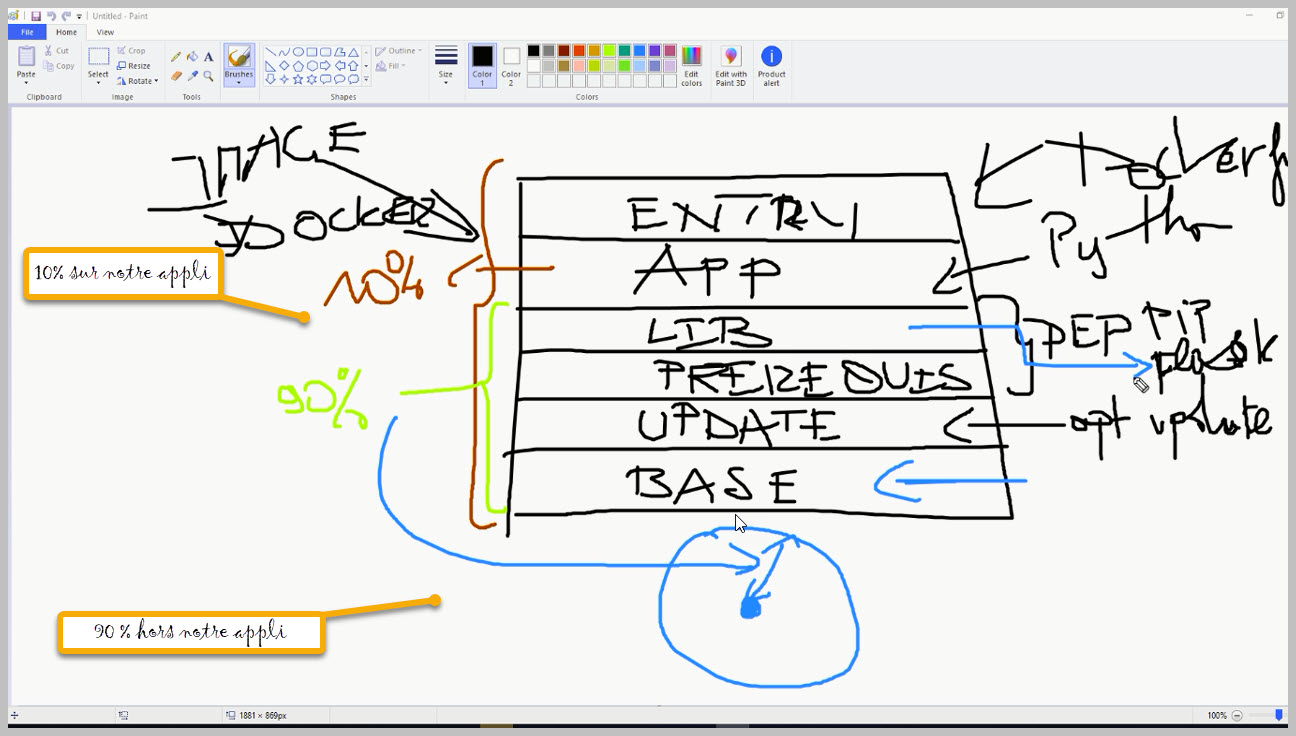 Untitled - Paint
File Home View
Paste
Cut
Copy
Clipboard
Select
Crop
Resize
Rotate
Image
Tools
Brushes
Shapes
Outline
Fill
Size
Color 1
Color 2
Colors
Edit colors
Edit with Paint 3D
Product alert
IMAGE
DOCKER
10% sur notre appli
10%
90%
90 % hors notre appli
ENTRY
APP
LIB
PREREQUIS
UPDATE
BASE
Dockerf
Pyth
DEP PIP
flask
apt update
1881 × 869px
100%